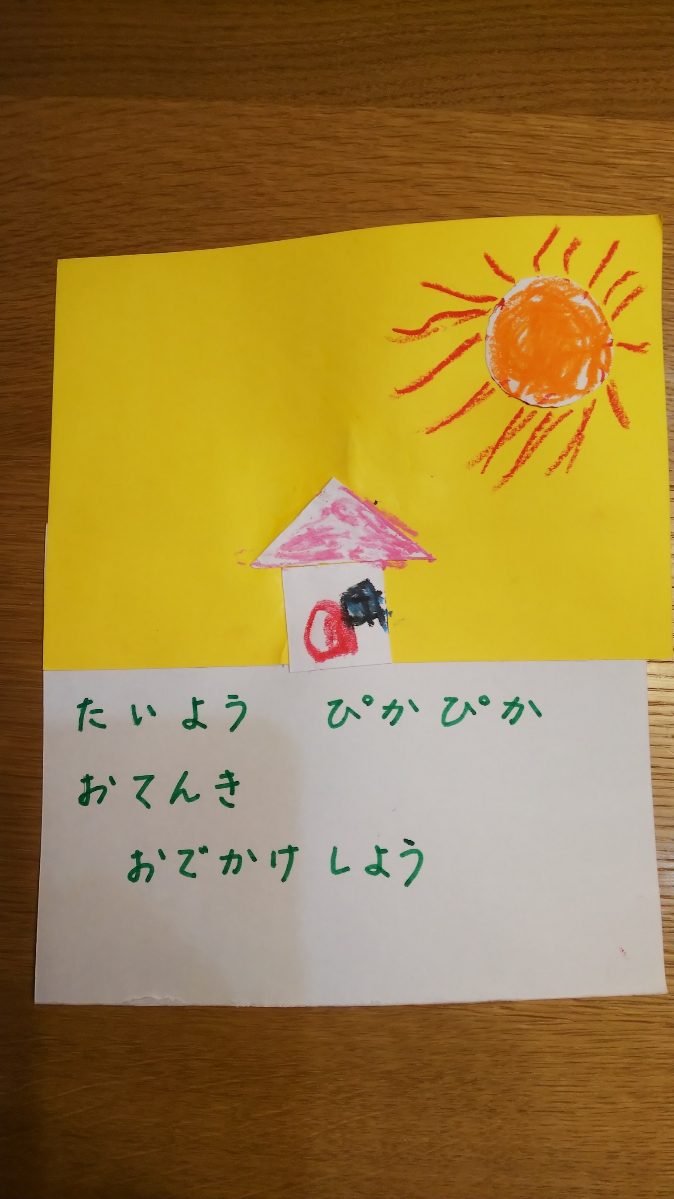 たいよう ぴかぴか
おてんき
おでかけしよう